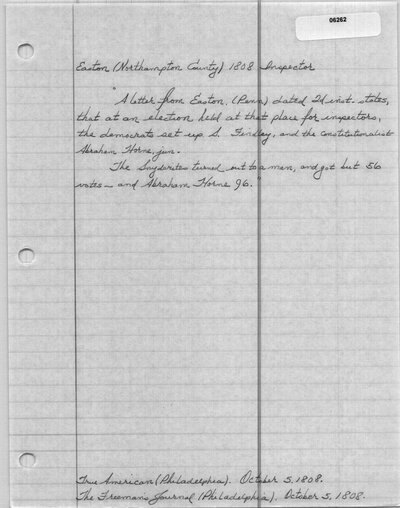 06262
Easton (Northampton County) 1808 Inspector
"A letter from Easton, (Penn) dated 2d inst. states,
that at an election held at that place for inspectors,
the democrats set up S. Findley, and the Constitutionalists
Abraham Horne, jun.
The Snyderites turned out to a man, and got but 56
votes — and Abraham Horne 96."
True American (Philadelphia). October 5, 1808.
The Freeman's Journal (Philadelphia). October 5, 1808.